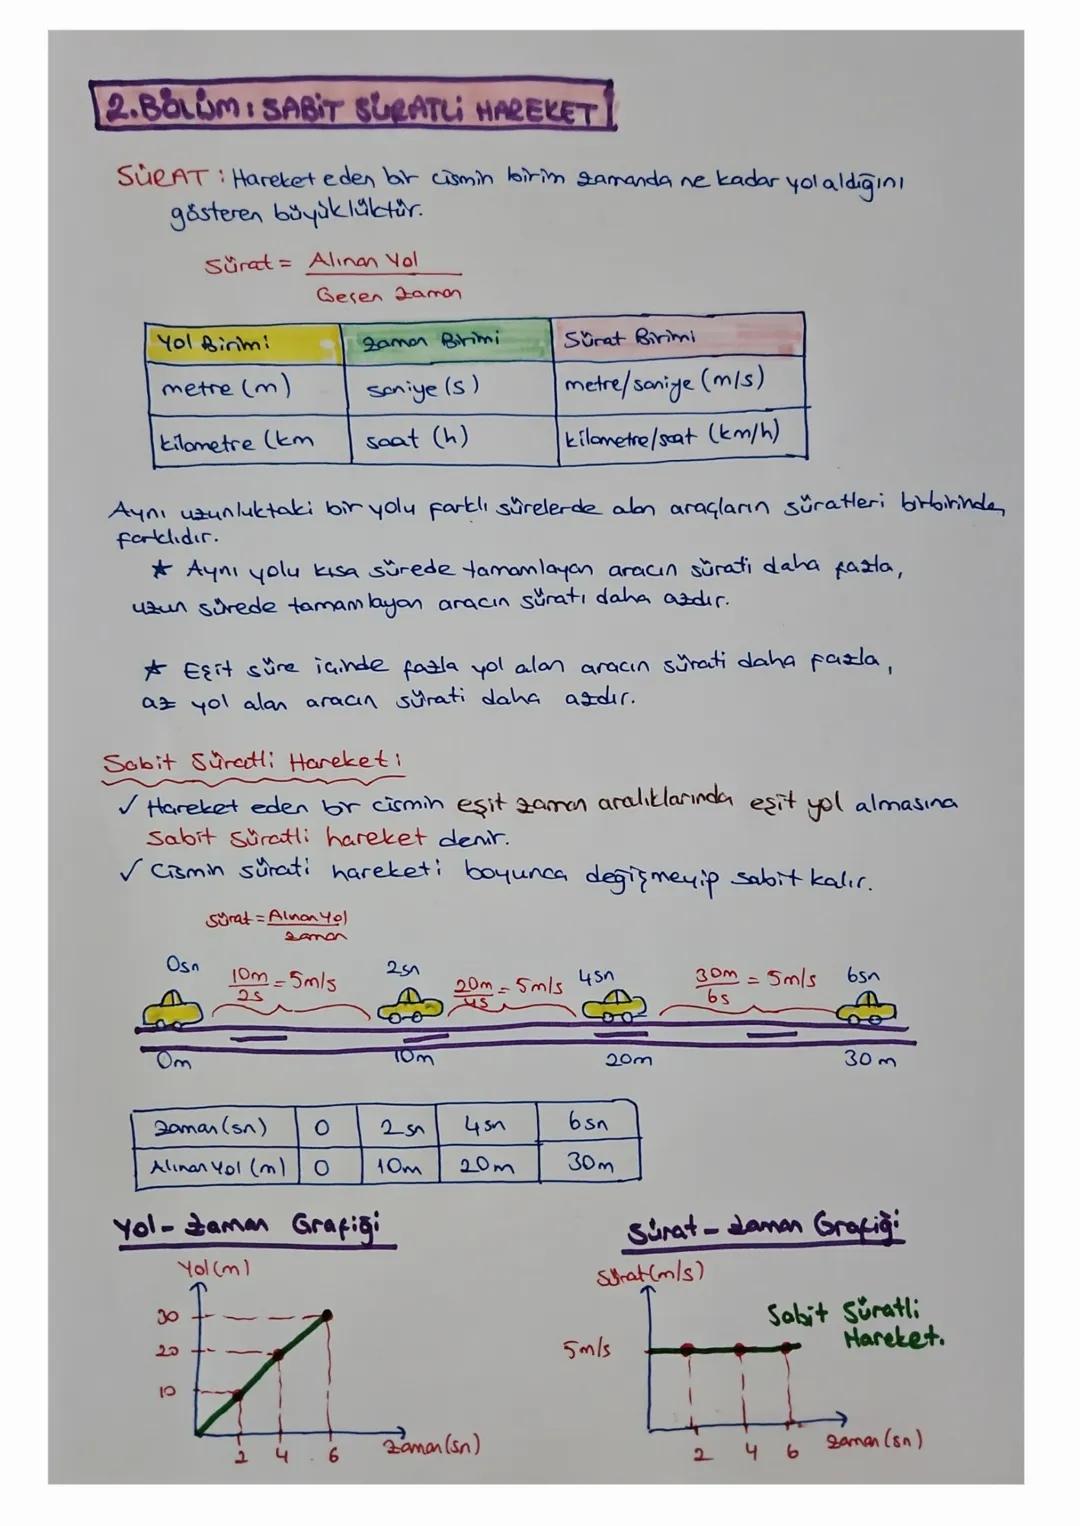 2.BÖLÜM: SABİT SÜRATLİ HAREKET
SÜRAT: Hareket eden bir cismin birim zamanda ne kadar yol aldığını
gösteren büyüklüktür.
Sürat = Alınan Yol
Geçen Zaman
Yol Birimi Zaman Birimi Sürat Birimi
metre (m) saniye (s) metre/saniye (m/s)
kilometre (km saat (h) kilometre/saat (km/h)
Aynı uzunluktaki bir yolu farklı sürelerde alan araçların süratleri birbirinden
farklıdır.
★ Aynı yolu kısa sürede tamamlayan aracın sürati daha fazla,
uzun sürede tamamlayan aracın süratı daha azdır.
★ Eşit süre içinde fazla yol alan aracın sürati daha fazla,
az yol alan aracın sürati daha azdır.
Sabit Süratli Hareket:
✓ Hareket eden bir cismin eşit zaman aralıklarında eşit yol almasına
Sabit Süratli hareket denir.
✓ Cismin sürati hareketi boyunca değişmeyip sabit kalır.
Sürat = Alınan Yol
zaman
0sn 2sn 4sn 6sn
10m = 5m/s 20m = 5m/s 30m = 5m/s
2s 4s 6s
0m 10m 20m 30m
Zaman (sn) 0 2sn 4sn 6sn
Alınan Yol (m) 0 10m 20m 30m
Yol - Zaman Grafiği
Yol (m)
30
20
10
2 4 6
Zaman (sn)
Sürat - Zaman Grafiği
Sürat (m/s)
Sabit Süratli
Hareket.
5m/s
2 4 6
Zaman (sn)